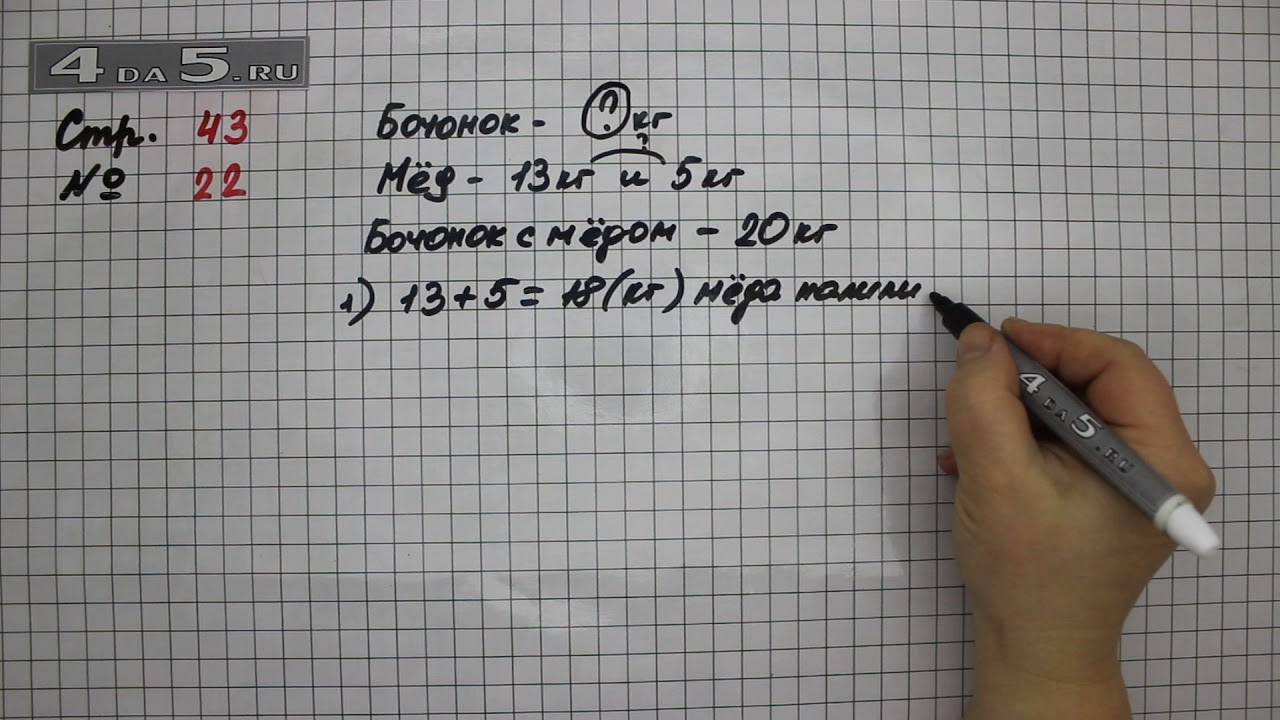 4 DA 5.RU
Стр. 43
№ 22
Бочонок - ? кг
?
Мёд - 13 кг и 5 кг
Бочонок с мёдом - 20 кг
1) 13 + 5 = 18 (кг) мёда налили
4 DA 5.RU